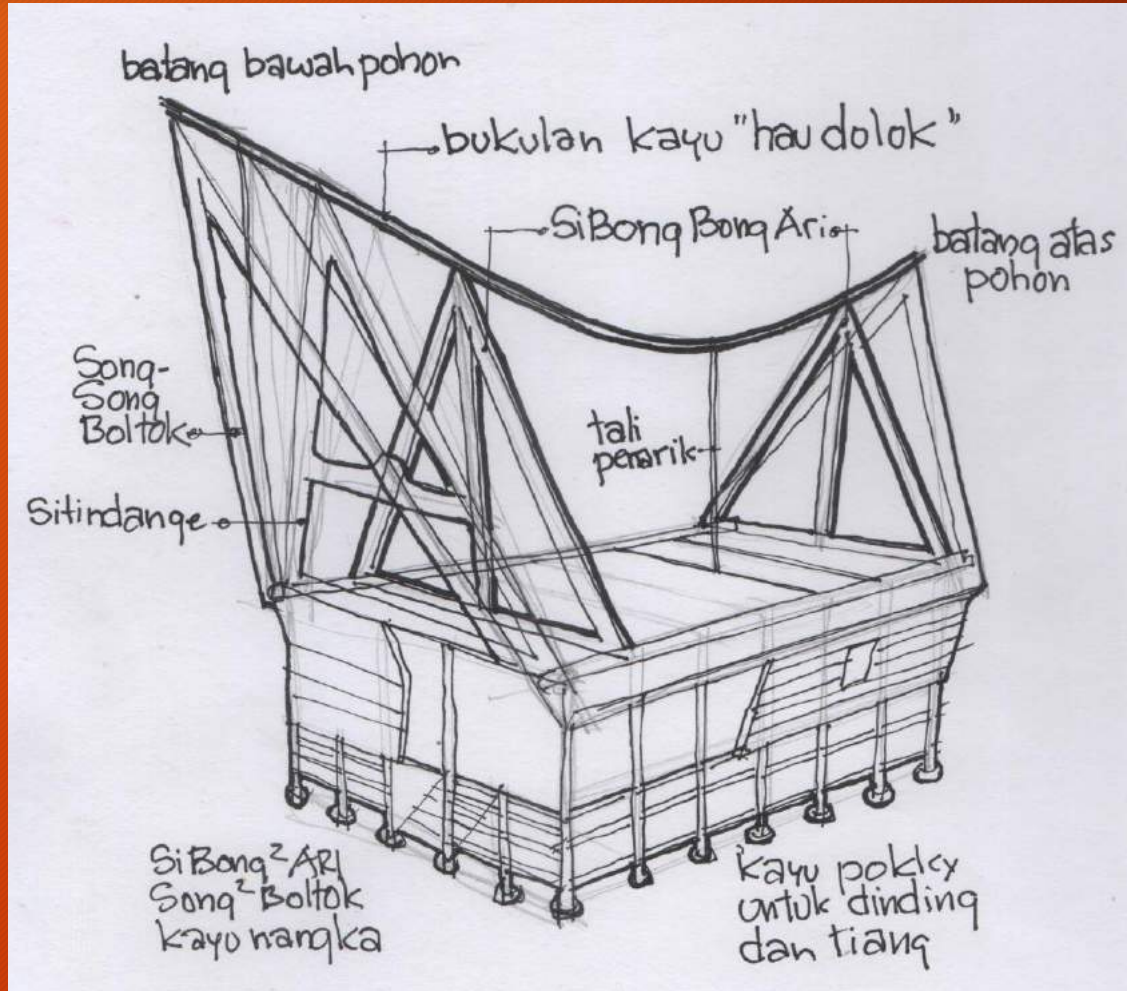 batang bawah pohon
bukulan kayu "hau dolok"
SiBong Bong Ari
batang atas
pohon
Song-
Song
Boltok
tali
penarik
Sitindange
SiBong² ARI
Song² Boltok
kayu nangka
kayu pokky
untuk dinding
dan tiang